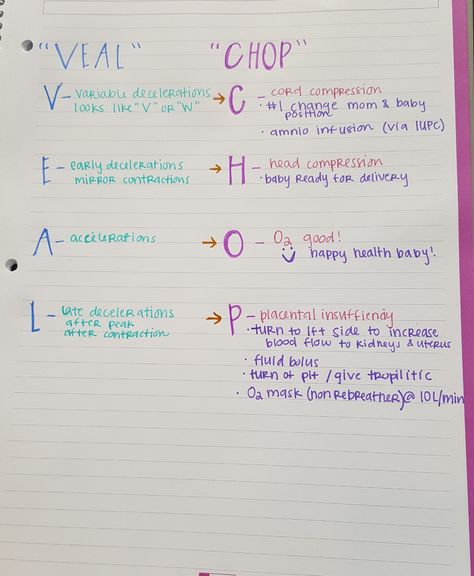 "VEAL" "CHOP"
V - variable decelerations → C - cord compression
looks like "V" or "W" • #1 change mom & baby
position
• amnio infusion (via IUPC)
E - early decelerations → H - head compression
mirror contractions • baby ready for delivery
A - accelerations → O - O2 good!
happy health baby!
L - late decelerations → P - placental insufficiency
after peak • turn to lft side to increase
after contraction blood flow to kidneys & uterus
• fluid bolus
• turn of pit / give tropilitic
• O2 mask (nonrebreather) @ 10L/min